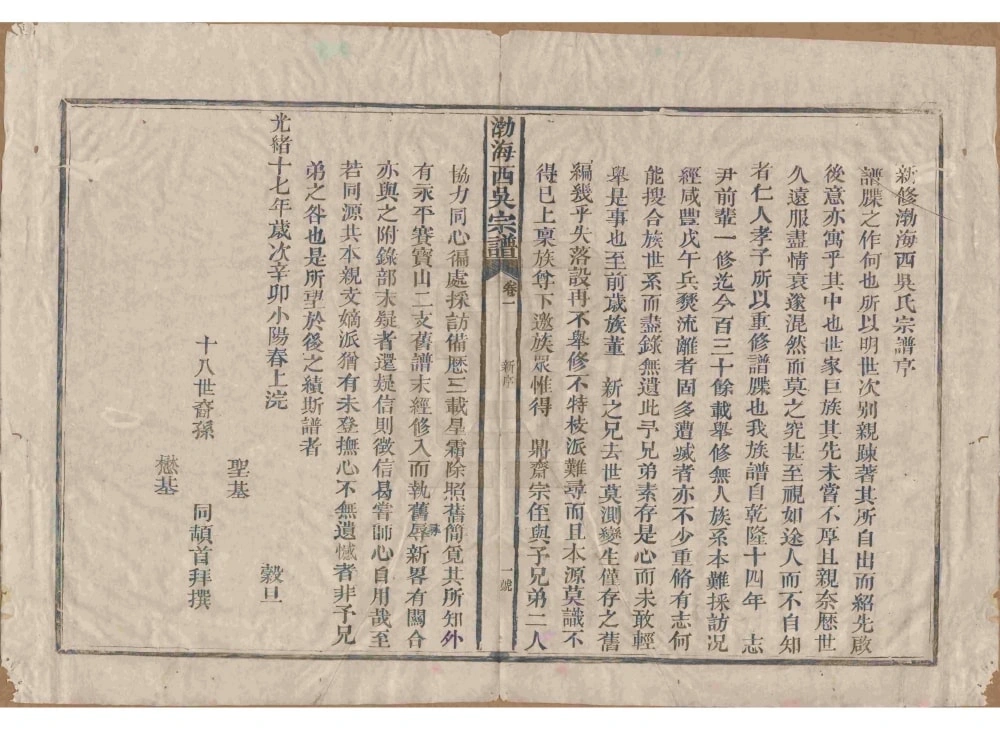 新修渤海西吳氏宗譜序
譜牒之作何也所以明世次別親疎著其所自出而紹先啟
後意亦寓乎其中也世家巨族其先未嘗不厚且親奈歷世
久遠服盡情衰遂混然而莫之究甚至視如途人而不自知
者仁人孝子所以重修譜牒也我族譜自乾隆十四年 志
尹前輩一修迄今百三十餘載舉修無人族系本難採訪况
經咸豐戊午兵燹流離者固多遭㓕者亦不少重脩有志何
能搜合族世系而盡錄無遺此予兄弟素存是心而未敢輕
舉是事也至前歲族董 新之兄去世莫測變生僅存之舊
編幾乎失落設再不舉修不特枝派難尋而且本源莫識不
得已上稟族尊下邀族眾惟得 鼎齋宗侄與予兄弟二人
渤海西吳宗譜 卷一 新序 一號
協力同心徧處採訪備歷三載星霜除照舊簡覓其所知外
有永平賽寶山二支舊譜未經修入而執舊辱新畧有關合
亦與之附錄部末疑者還疑信則徵信曷嘗師心自用哉至
若同源共本親支嫡派猶有未登撫心不無遺憾者非予兄
弟之咎也是所望於後之續斯譜者
光緒十七年歲次辛卯小陽春上浣 穀旦
十八世裔孫 聖基
懋基 同頓首拜撰